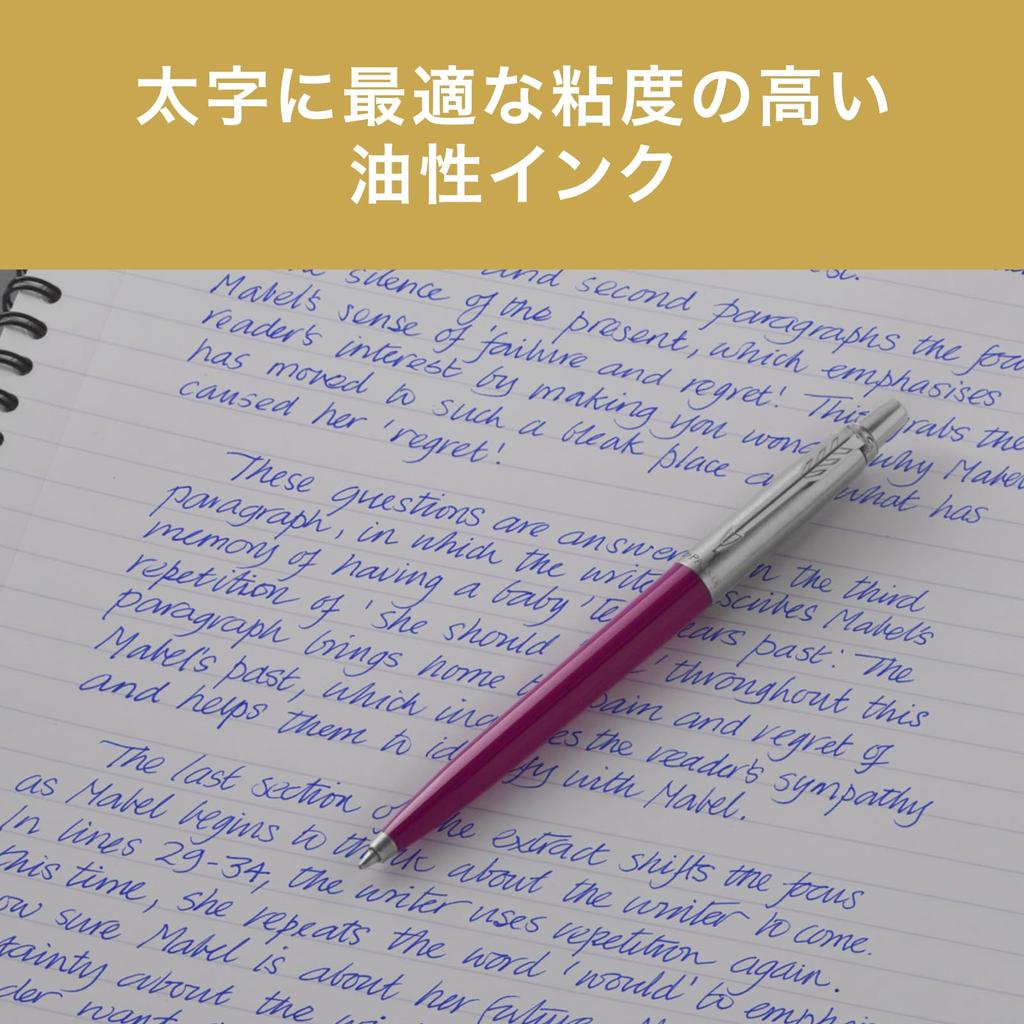 太字に最適な粘度の高い
油性インク
silence of the and second paragraphs the
Mabel's sense of the present, which emphasises
reader's interest of failure and regret! This grabs the
has moved by making you wonder why Mabel
caused her to such a bleak place and what has
'regret!
These questions are answered in the third
paragraph, in which the writer describes Mabel's
memory of having a baby years past: The
repetition of 'she should throughout this
paragraph brings home pain and regret of
Mabel's past, which the reader's sympathy
and helps them to with Mabel.
The last section of the extract shifts the focus
as Mabel begins to think about the writer to come.
In lines 29-34, the writer uses repetition again.
This time, she repeats the word 'would' to
sure Mabel is about her future.
about the
want